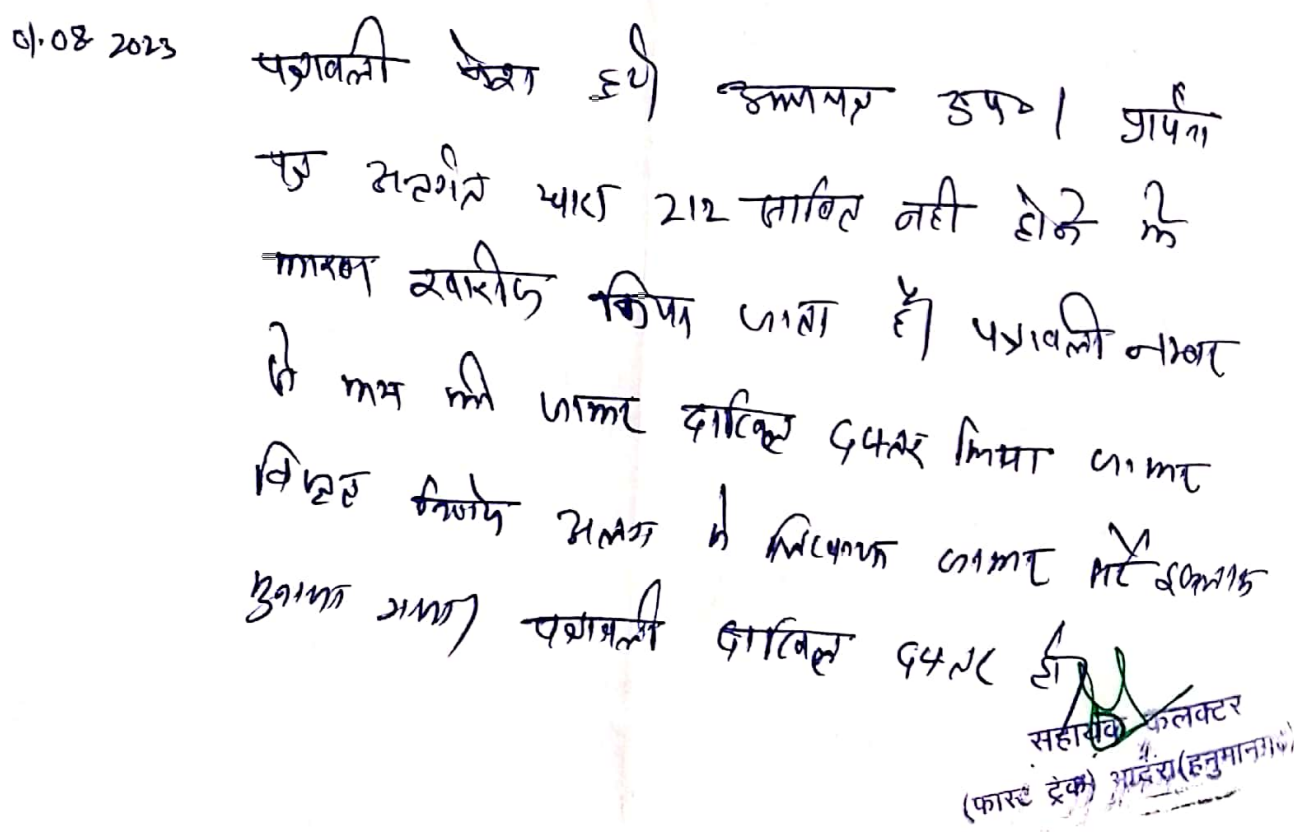 01.08 2023 पत्रावली पेश हुयी उभयपक्ष उप०। प्रार्थना
पत्र अन्तर्गत धारा 212 साबित नही होने के
कारण खारीज किया जाता है। पत्रावली नम्बर
से कम की जाकर दाखिल दफ्तर किया जाकर
विस्तृत निर्णय अलग से लिखाया जाकर सरे इजलास
सुनाया गया। पत्रावली दाखिल दफ्तर हो
सहायक कलक्टर
(फास्ट ट्रेक) (हनुमानगढ़)